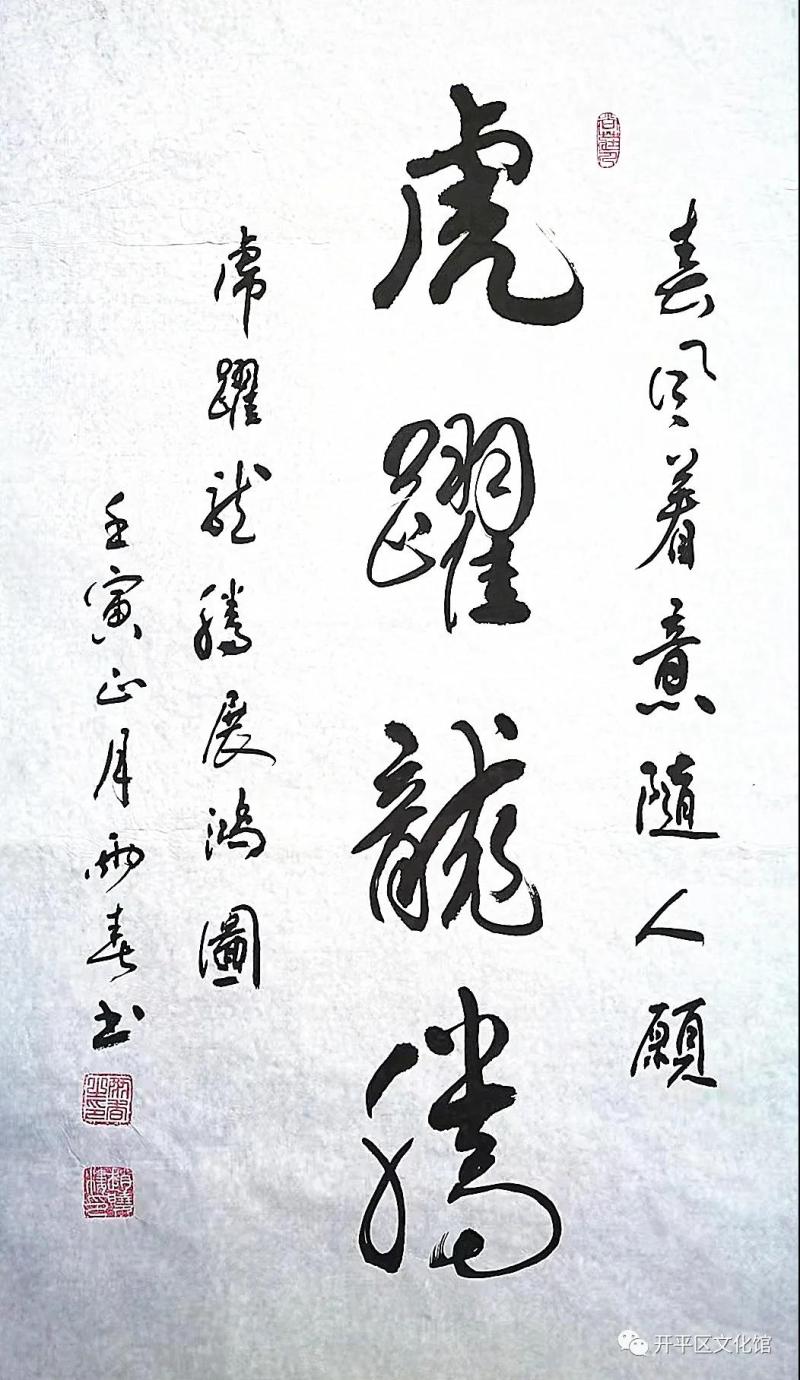 春风着意隨人願
虎躍龍騰
虎躍龍騰展鴻圖
壬寅正月雨春书
开平区文化馆